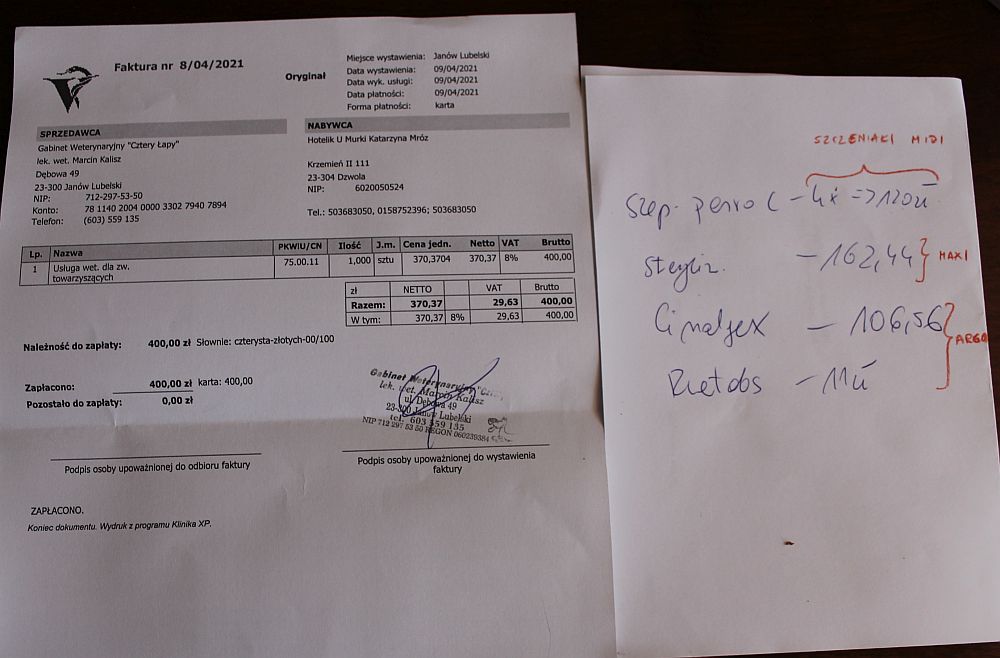 Faktura nr 8/04/2021
Oryginał
Miejsce wystawienia: Janów Lubelski
Data wystawienia: 09/04/2021
Data wyk. usługi: 09/04/2021
Data płatności: 09/04/2021
Forma płatności: karta
SPRZEDAWCA
Gabinet Weterynaryjny "Cztery Łapy"
lek. wet. Marcin Kalisz
Dębowa 49
23-300 Janów Lubelski
NIP: 712-297-53-50
Konto: 78 1140 2004 0000 3302 7940 7894
Telefon: (603) 559 135
NABYWCA
Hotelik U Murki Katarzyna Mróz
Krzemień II 111
23-304 Dzwola
NIP: 6020050524
Tel.: 503683050, 0158752396; 503683050
Lp. Nazwa PKWiU/CN Ilość J.m. Cena jedn. Netto VAT Brutto
1 Usługa wet. dla zw. 75.00.11 1,000 sztu 370,3704 370,37 8% 400,00
towarzyszących
zł NETTO VAT Brutto
Razem: 370,37 29,63 400,00
W tym: 370,37 8% 29,63 400,00
Należność do zapłaty: 400,00 zł Słownie: czterysta-złotych-00/100
Zapłacono: 400,00 zł karta: 400,00
Pozostało do zapłaty: 0,00 zł
Gabinet Weterynaryjny "Cztery
lek. wet. Marcin Kalisz
ul. Dębowa 49
23-300 Janów Lubelski
tel. 603 559 135
NIP 712 297 53 50 REGON 060239384
Podpis osoby upoważnionej do odbioru faktury
Podpis osoby upoważnionej do wystawienia
faktury
ZAPŁACONO.
Koniec dokumentu. Wydruk z programu Klinika XP.
SZCZENIAKI MIDI
Szcp. Parvo C - 4x => 120zł
- 162,44 MAXI
Cimalgex - 106,56 ARGO
- 11zł